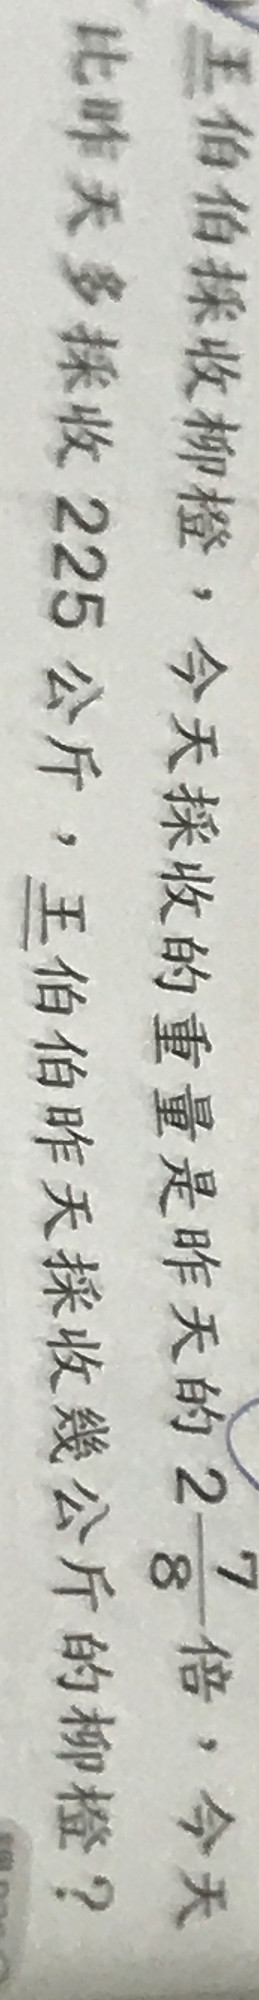 王伯伯採收柳橙，今天採收的重量是昨天的2 7/8倍，今天
比昨天多採收225公斤，王伯伯昨天採收幾公斤的柳橙？